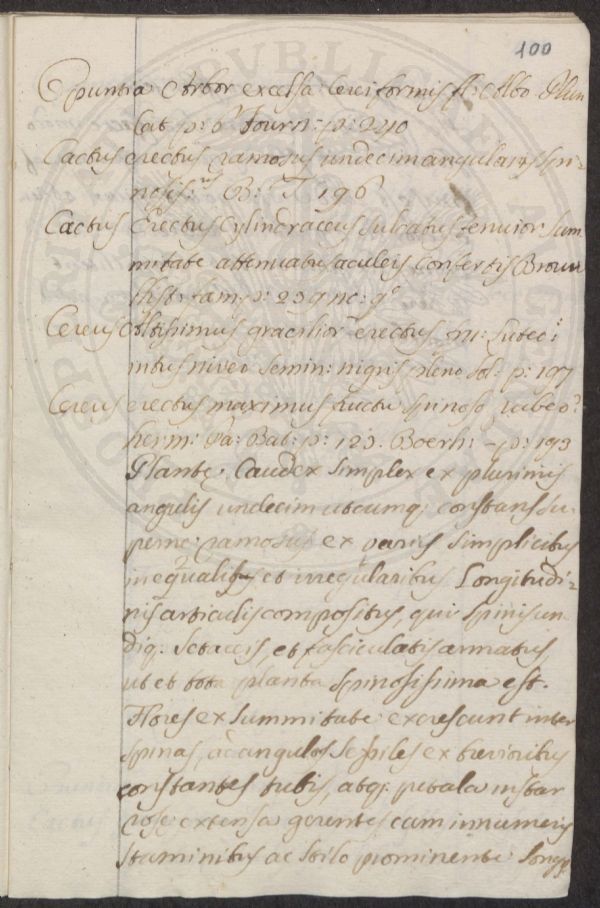 100
Opuntia Arbor excelsa cereiformis fl: Albo Plum
Cat. p: 6 Tourn: p: 240
Cactus erectus ramosus undecimangularis spi-
nosis: B: T 196
Cactus Erectus Cylindraceus sulcatus tenuior sum
mitate attenuatus aculeis confertis Brown
Hist: Jam p: 239 no: 9
Cereus Altissimus gracilior erectus fru: lutec:
intus niveo semin: nigris pleno Sol: p: 197
Cereus erectus maximus fructu spinoso rubeo
herm: Pa: Bat: p: 123. Boerh: - p: 193
Plantę Caudex simplex ex plurimis
angulis undecim utcumq; constans su-
perne ramosus ex variis simplicibus
inequalibus et irregularibus Longitudi-
nis articulis compositus, qui spinis un-
diq: setaceis, et fasciculatis armatus,
ut et tota planta spinosissima est.
Flores ex summitate excrescunt inter
spinas, ad angulos sessiles ex brevioribus
constantes tubis, atq: petala instar
rosę extensa gerentes cum innumeris
staminibus ac stilo prominente